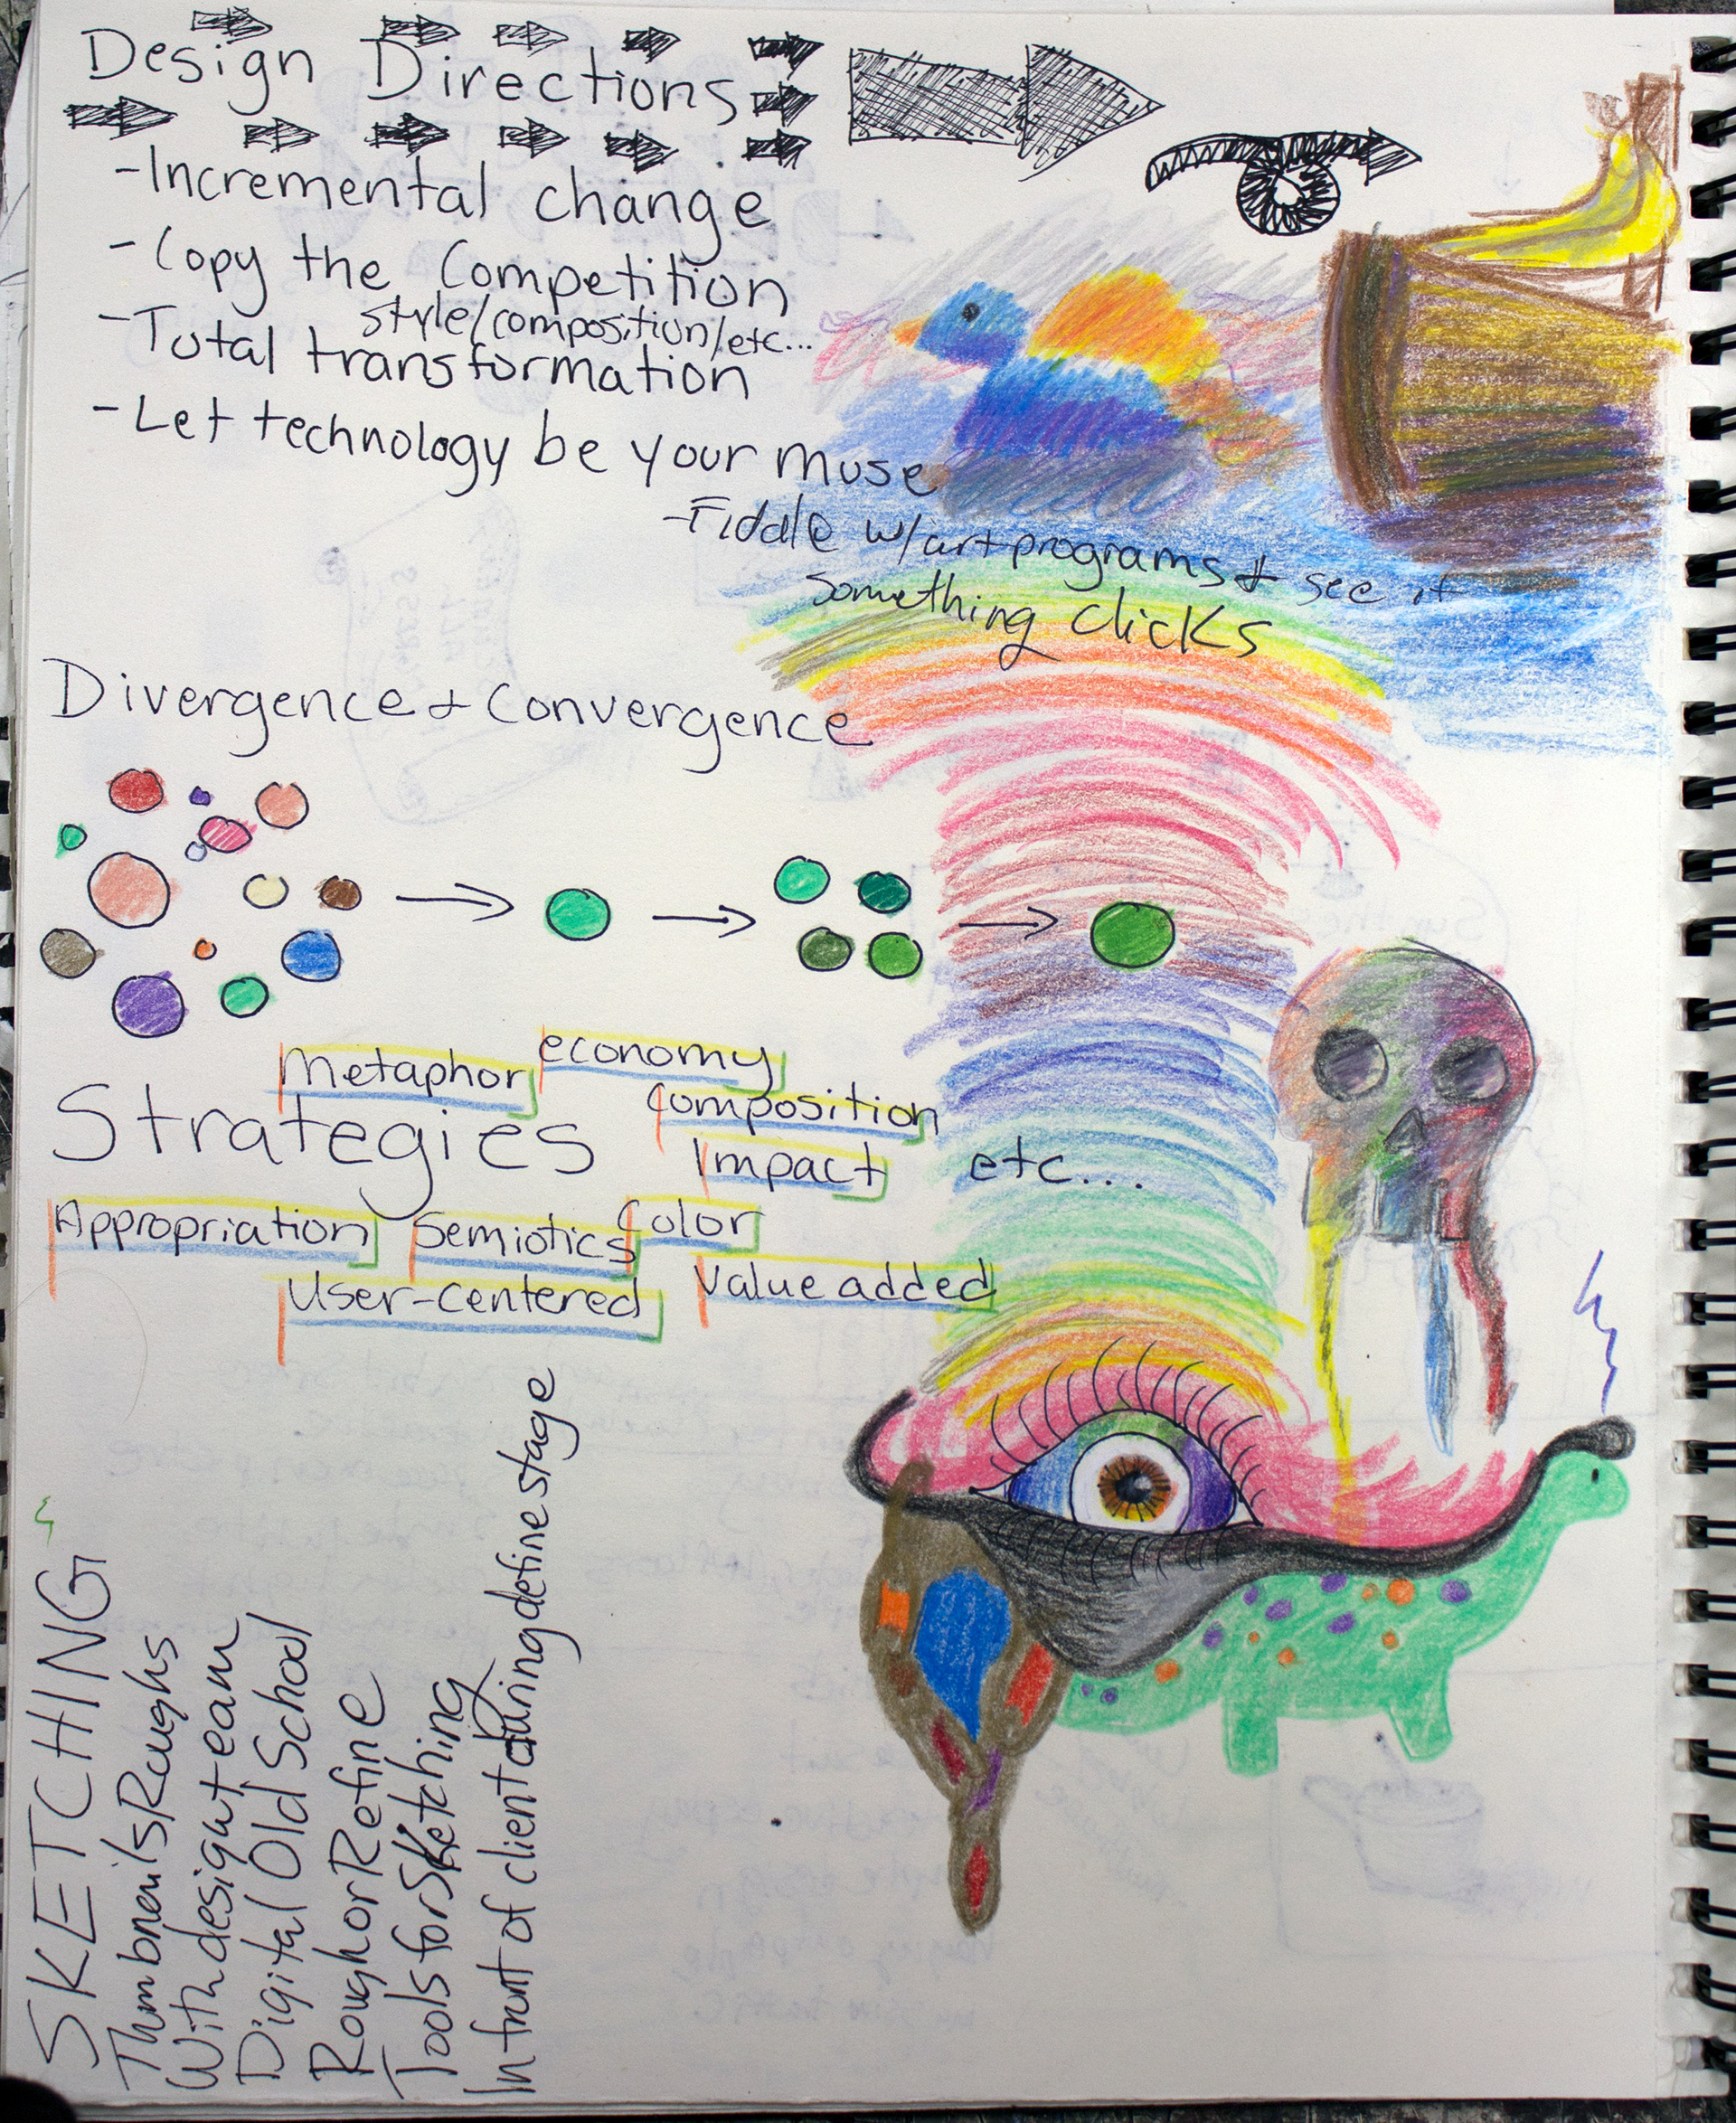 Design Directions
-Incremental change
-Copy the Competition
style/composition/etc...
-Total transformation
-Let technology be your muse
-Fiddle w/art programs & see if
something clicks
Divergence & Convergence
Metaphor
economy
Strategies
Composition
Impact
etc...
Appropriation
Semiotics
Color
User-centered
Value added
SKETCHING
Thumbnails Roughs
With design team
Digital Old School
Rough or Refine
Tools for Sketching
In front of client during define stage